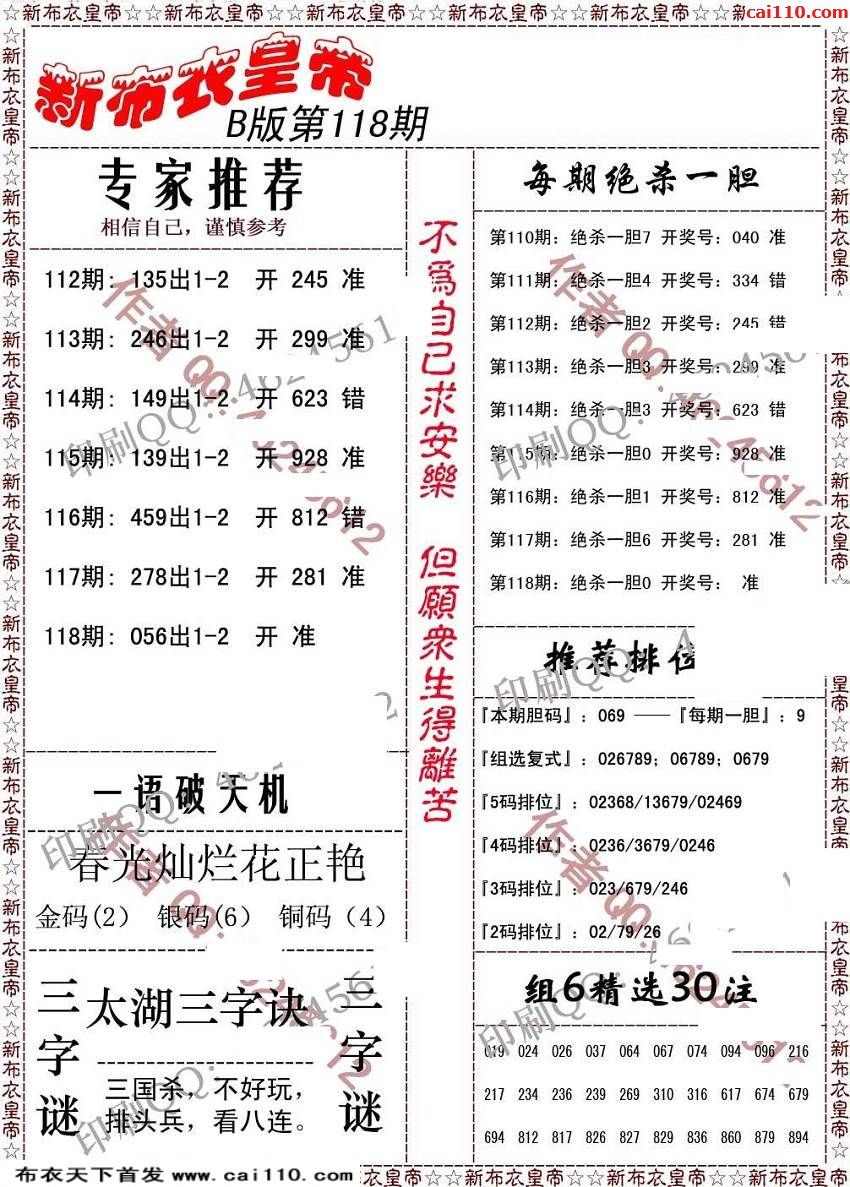 新布衣皇帝☆☆新布衣皇帝☆☆新布衣皇帝☆☆新布衣皇帝☆☆新布衣皇帝☆☆新布衣皇帝☆☆新
cai110.com
新布衣皇帝
B版第118期
专家推荐
相信自己，谨慎参考
112期: 135出1-2 开 245 准
113期: 246出1-2 开 299 准
114期: 149出1-2 开 623 错
115期: 139出1-2 开 928 准
116期: 459出1-2 开 812 错
117期: 278出1-2 开 281 准
118期: 056出1-2 开 准
一语破天机
春光灿烂花正艳
金码(2) 银码(6) 铜码（4）
三字谜
太湖三字诀
三国杀，不好玩，
排头兵，看八连。
三字谜
不爲自己求安樂 但願衆生得離苦
每期绝杀一胆
第110期: 绝杀一胆7 开奖号: 040 准
第111期: 绝杀一胆4 开奖号: 334 错
第112期: 绝杀一胆2 开奖号: 245 错
第113期: 绝杀一胆3 开奖号: 299 准
第114期: 绝杀一胆3 开奖号: 623 错
第115期: 绝杀一胆0 开奖号: 928 准
第116期: 绝杀一胆1 开奖号: 812 准
第117期: 绝杀一胆6 开奖号: 281 准
第118期: 绝杀一胆0 开奖号: 准
推荐排位
『本期胆码』: 069 ——『每期一胆』: 9
『组选复式』: 026789; 06789; 0679
『5码排位』: 02368/13679/02469
『4码排位』: 0236/3679/0246
『3码排位』: 023/679/246
『2码排位』: 02/79/26
组6精选30注
019 024 026 037 064 067 074 094 096 216
217 234 236 239 269 310 316 617 674 679
694 812 817 826 827 829 836 860 879 894
布衣天下首发 www.cai110.com
☆新布衣皇帝☆☆新布衣皇帝☆☆新布衣皇帝☆☆新布衣皇帝☆